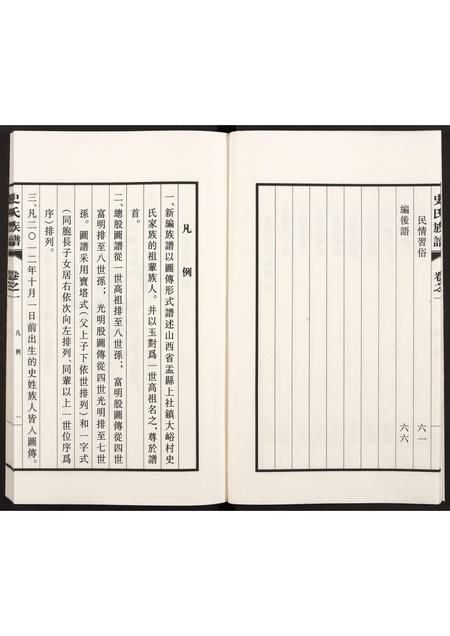 史氏族譜 卷之一
民情習俗 六一
編後語 六六
凡例
一、新編族譜以圖傳形式譜述山西省盂縣上社鎮大峪村史
氏家族的祖輩族人。并以玉對爲一世高祖名之，尊於譜
首。
二、總股圖譜從一世高祖排至八世孫；富明股圖傳從四世
富明排至八世孫；光明股圖傳從四世光明排至七世
孫。圖譜采用寶塔式(父上子下依世排列)和一字式
(同胞長子女居右依次向左排列、同輩以上一世位序爲
序)排列。
三、凡二〇一二年十月一日前出生的史姓族人皆入圖傳。
史氏族譜 卷之一 凡例 一